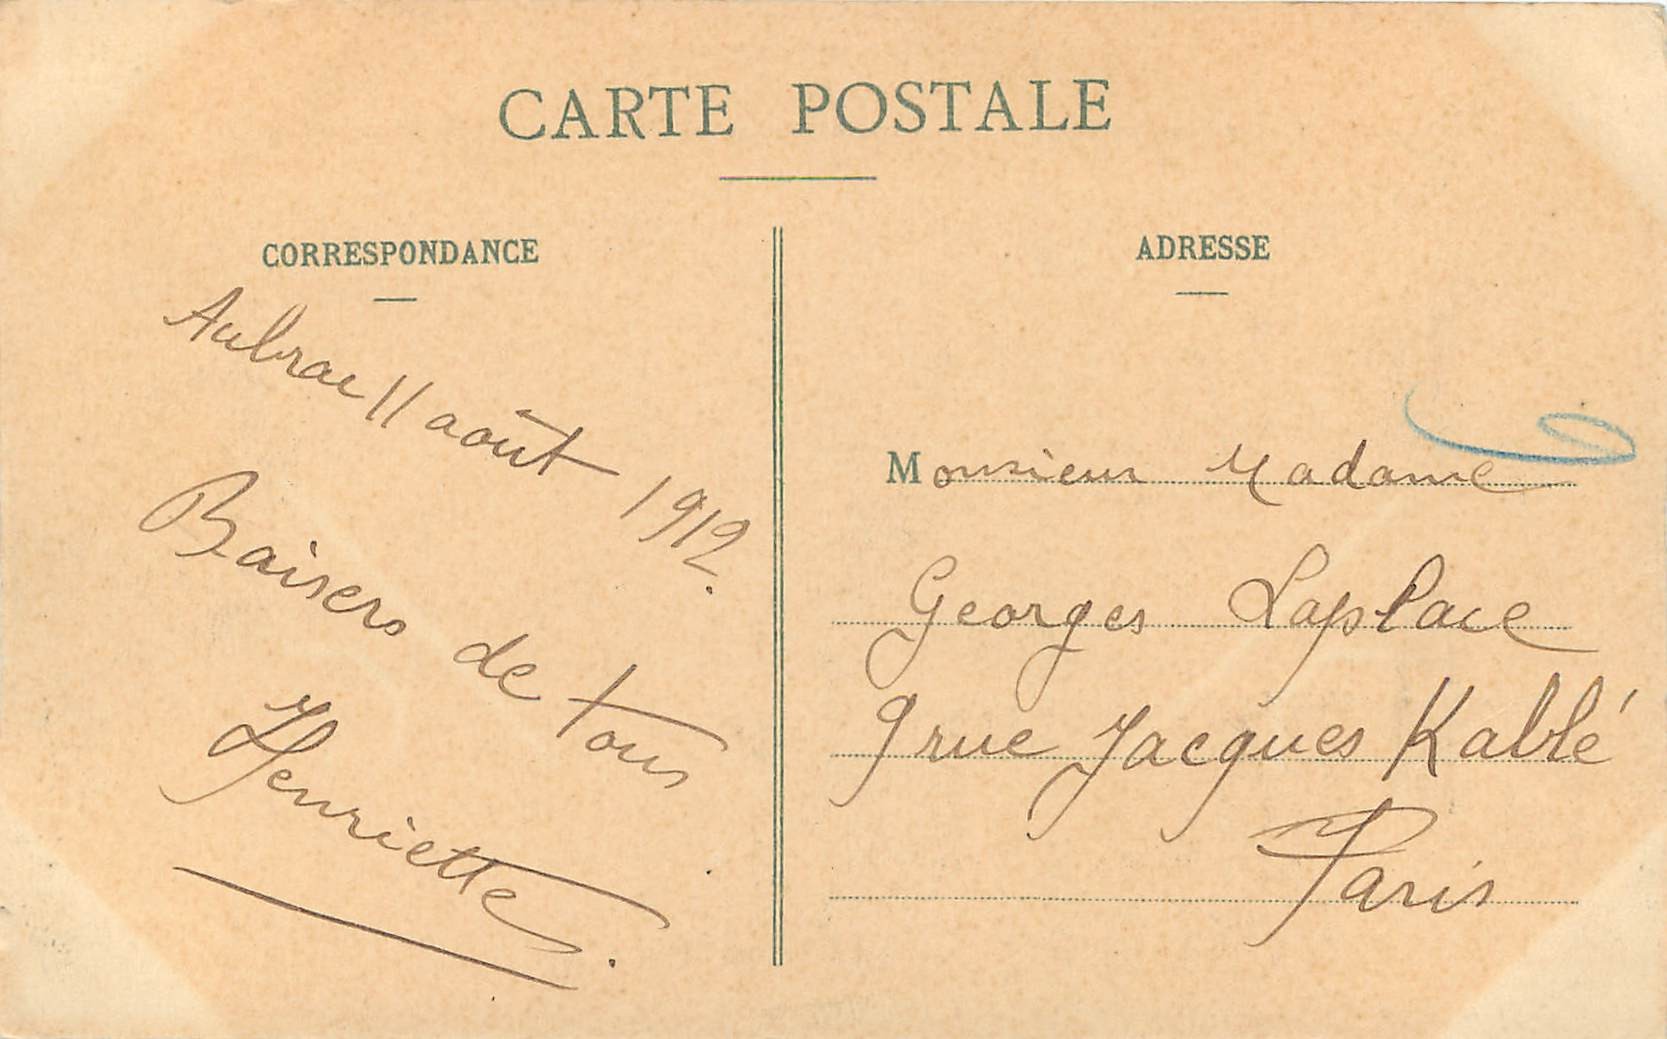 CARTE POSTALE
CORRESPONDANCE
Aubrac 11 août 1912.
Baisers de tous
Henriette.
ADRESSE
Monsieur Madame
Georges Laplace
9 rue Jacques Kablé
Paris